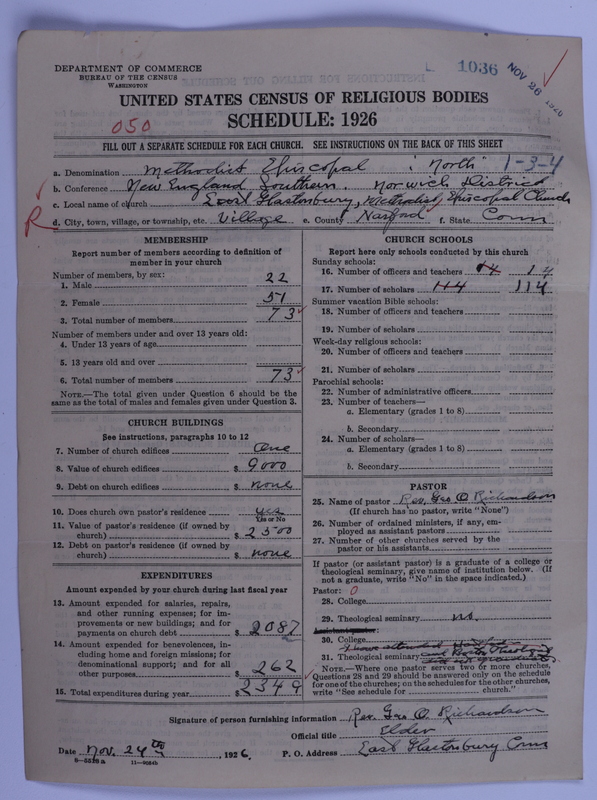 DEPARTMENT OF COMMERCE
BUREAU OF THE CENSUS
WASHINGTON
1036
NOV 26 1926
UNITED STATES CENSUS OF RELIGIOUS BODIES
050
SCHEDULE: 1926
FILL OUT A SEPARATE SCHEDULE FOR EACH CHURCH. SEE INSTRUCTIONS ON THE BACK OF THIS SHEET
a. Denomination Methodist Episcopal North 1-3-4
b. Conference New England Southern. Norwich District
c. Local name of church East Glastonbury, Methodist Episcopal Church
R d. City, town, village, or township, etc. Village e. County f. State Conn
MEMBERSHIP
Report number of members according to definition of
member in your church
Number of members, by sex:
1. Male 22
2. Female 51
3. Total number of members 73
Number of members under and over 13 years old:
4. Under 13 years of age
5. 13 years old and over
6. Total number of members 73
NOTE.—The total given under Question 6 should be the
same as the total of males and females given under Question 3.
CHURCH BUILDINGS
See instructions, paragraphs 10 to 12
7. Number of church edifices One
8. Value of church edifices $ 9000
9. Debt on church edifices $ none
10. Does church own pastor's residence yes
Yes or No
11. Value of pastor's residence (if owned by
church) $ 2500
12. Debt on pastor's residence (if owned by
church) $ none
EXPENDITURES
Amount expended by your church during last fiscal year
13. Amount expended for salaries, repairs,
and other running expenses; for im-
provements or new buildings; and for
payments on church debt $ 2087
14. Amount expended for benevolences, in-
cluding home and foreign missions; for
denominational support; and for all
other purposes $ 262
15. Total expenditures during year $ 2349
CHURCH SCHOOLS
Report here only schools conducted by this church
Sunday schools:
16. Number of officers and teachers 14 14
17. Number of scholars 114 114
Summer vacation Bible schools:
18. Number of officers and teachers
19. Number of scholars
Week-day religious schools:
20. Number of officers and teachers
21. Number of scholars
Parochial schools:
22. Number of administrative officers
23. Number of teachers—
a. Elementary (grades 1 to 8)
b. Secondary
24. Number of scholars—
a. Elementary (grades 1 to 8)
b. Secondary
PASTOR
25. Name of pastor Rev. Geo O. Richardson
(If church has no pastor, write "None")
26. Number of ordained ministers, if any, em-
ployed as assistant pastors
27. Number of other churches served by the
pastor or his assistants
If pastor (or assistant pastor) is a graduate of a college or
theological seminary, give name of institution below. (If
not a graduate, write "No" in the space indicated.)
Pastor: 0
28. College
29. Theological seminary no.
Assistant pastor:
30. College
31. Theological seminary
NOTE.—Where one pastor serves two or more churches,
Questions 28 and 29 should be answered only on the schedule
for one of the churches; on the schedules for the other churches,
write "See schedule for church."
Signature of person furnishing information Rev. Geo O. Richardson
Official title Elder
Date Nov. 24th, 1926. P. O. Address East Glastonbury Conn
8—5538a 11—9684b